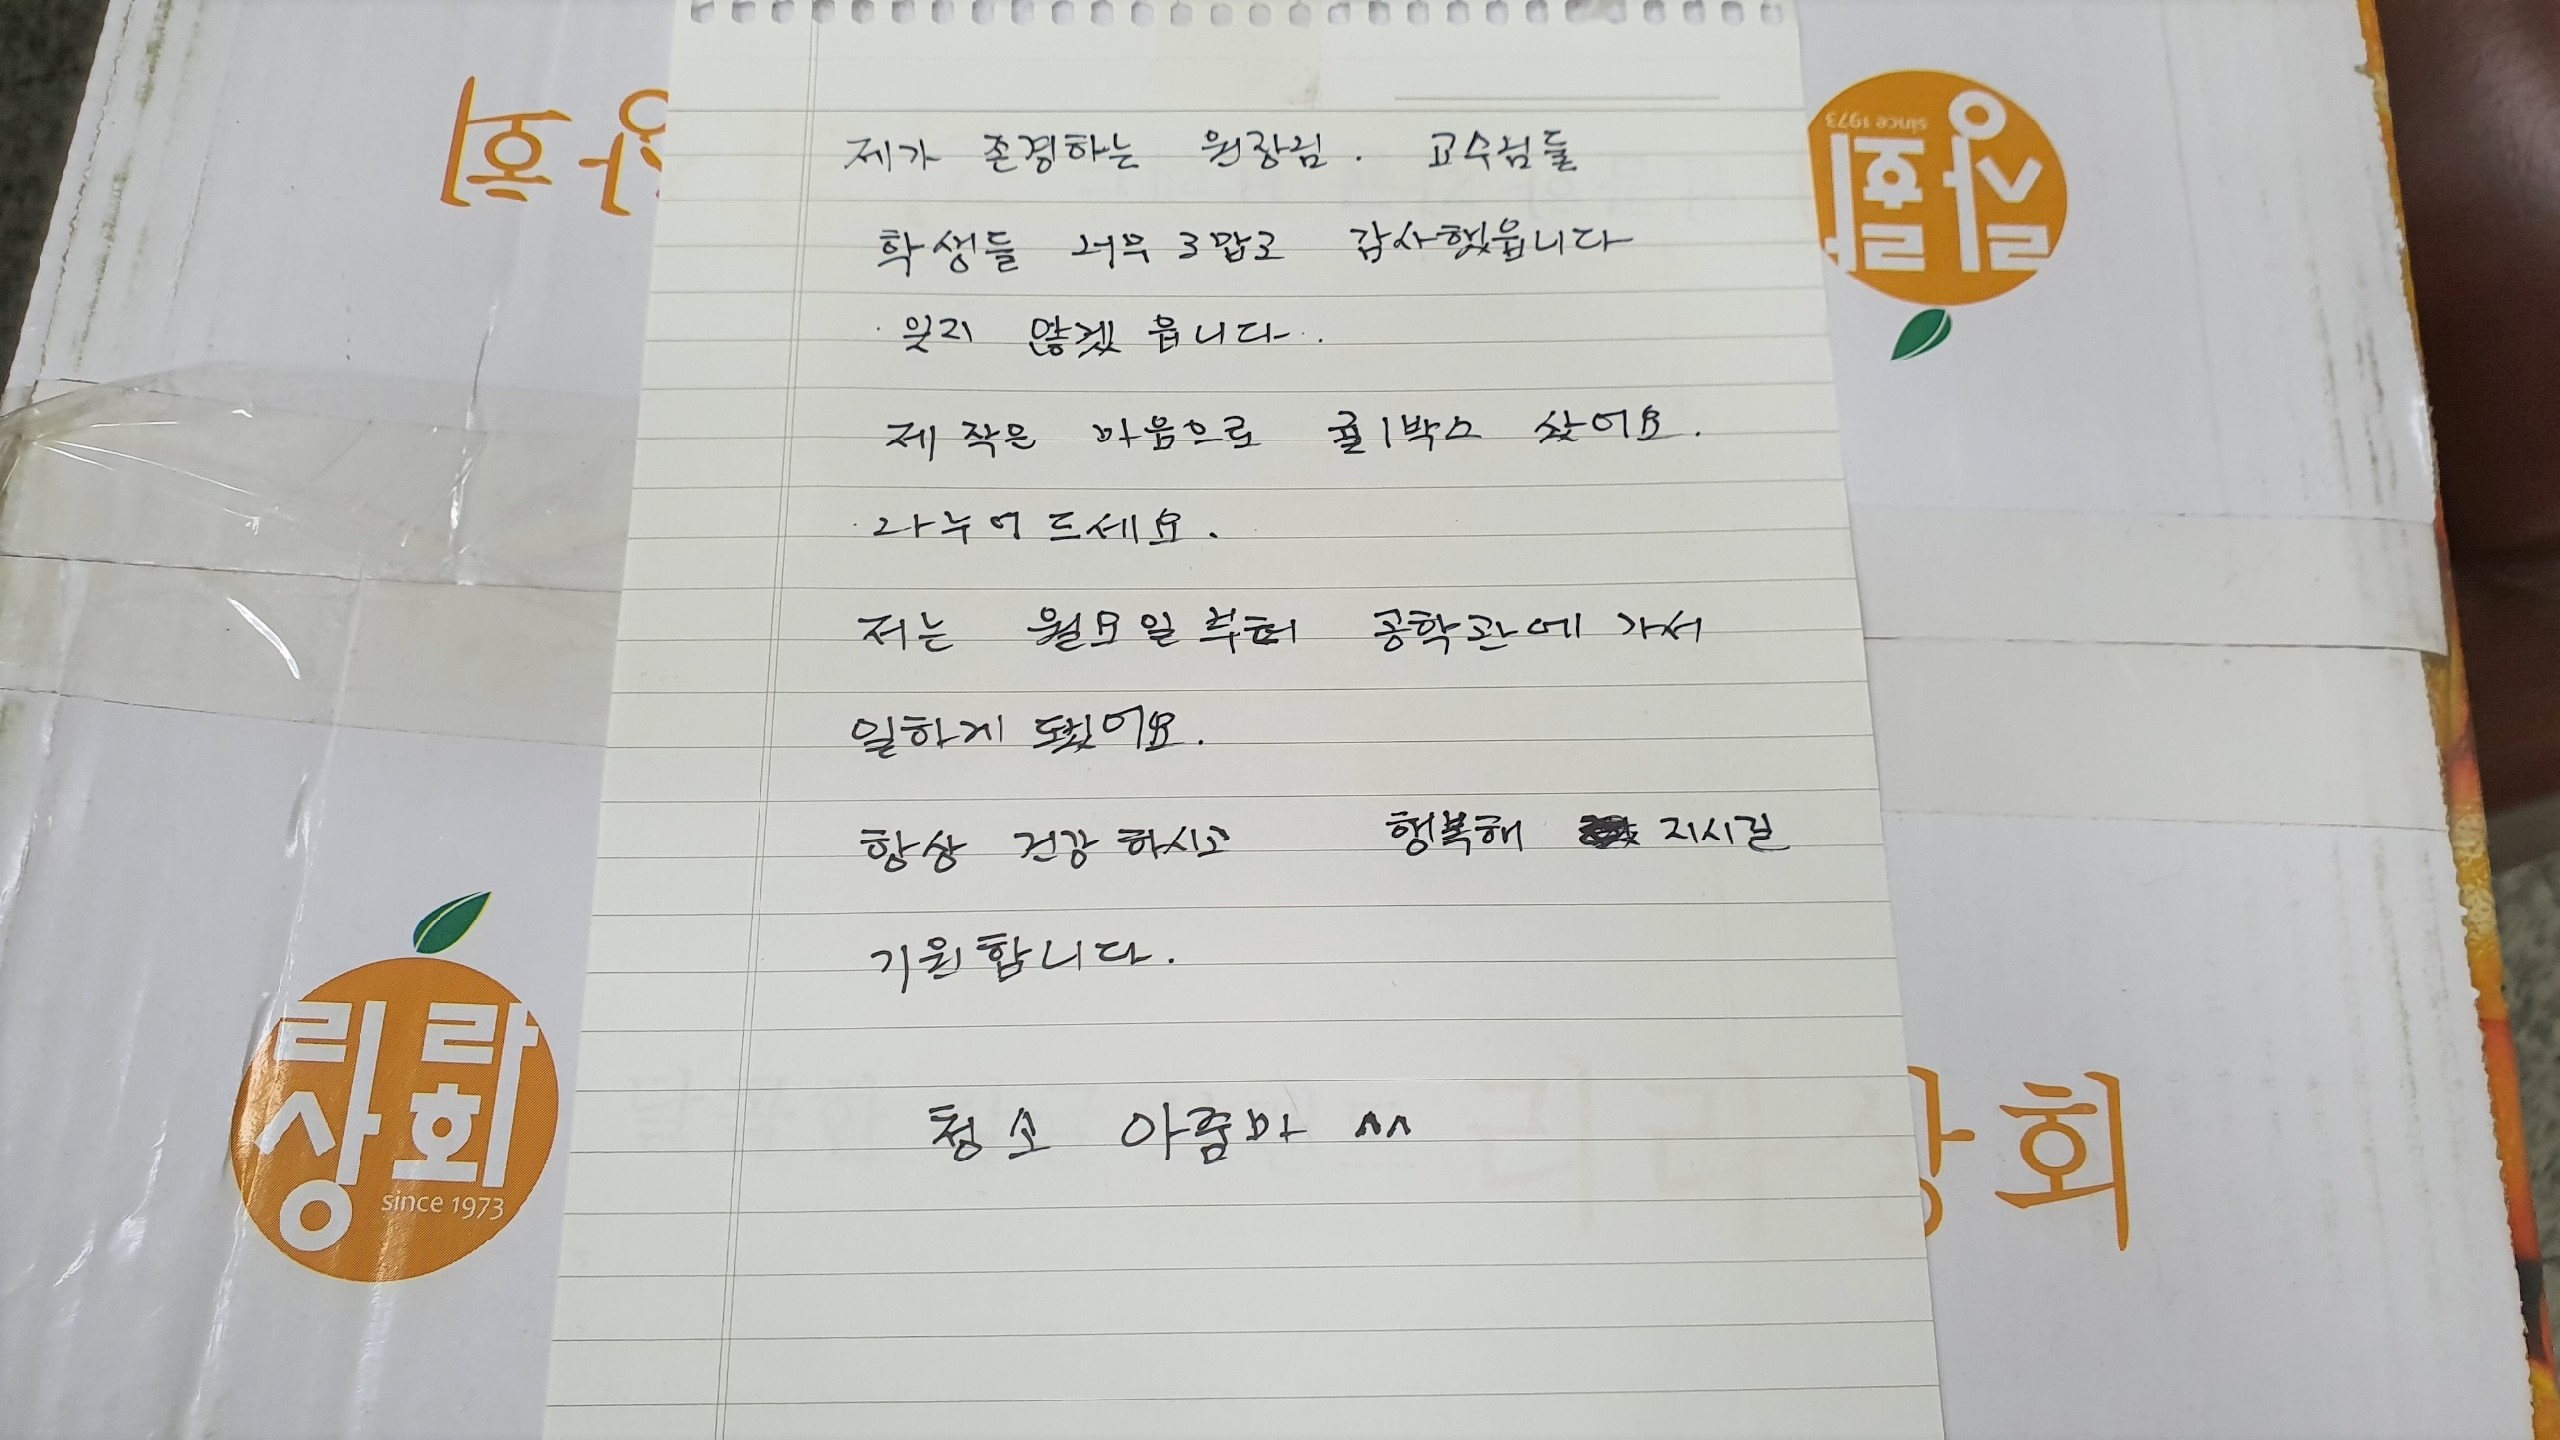 제가 존경하는 원장님. 교수님들
학생들 너무 고맙고 감사했읍니다
잊지 않겠읍니다.
제 작은 마음으로 귤1박스 샀어요.
나누어 드세요.
저는 월요일부터 공학관에 가서
일하게 됐어요.
항상 건강하시고 행복해 지시길
기원합니다.
청소 아줌마 ^^
릴락
상회
since 1973
상회
since 1973
상회